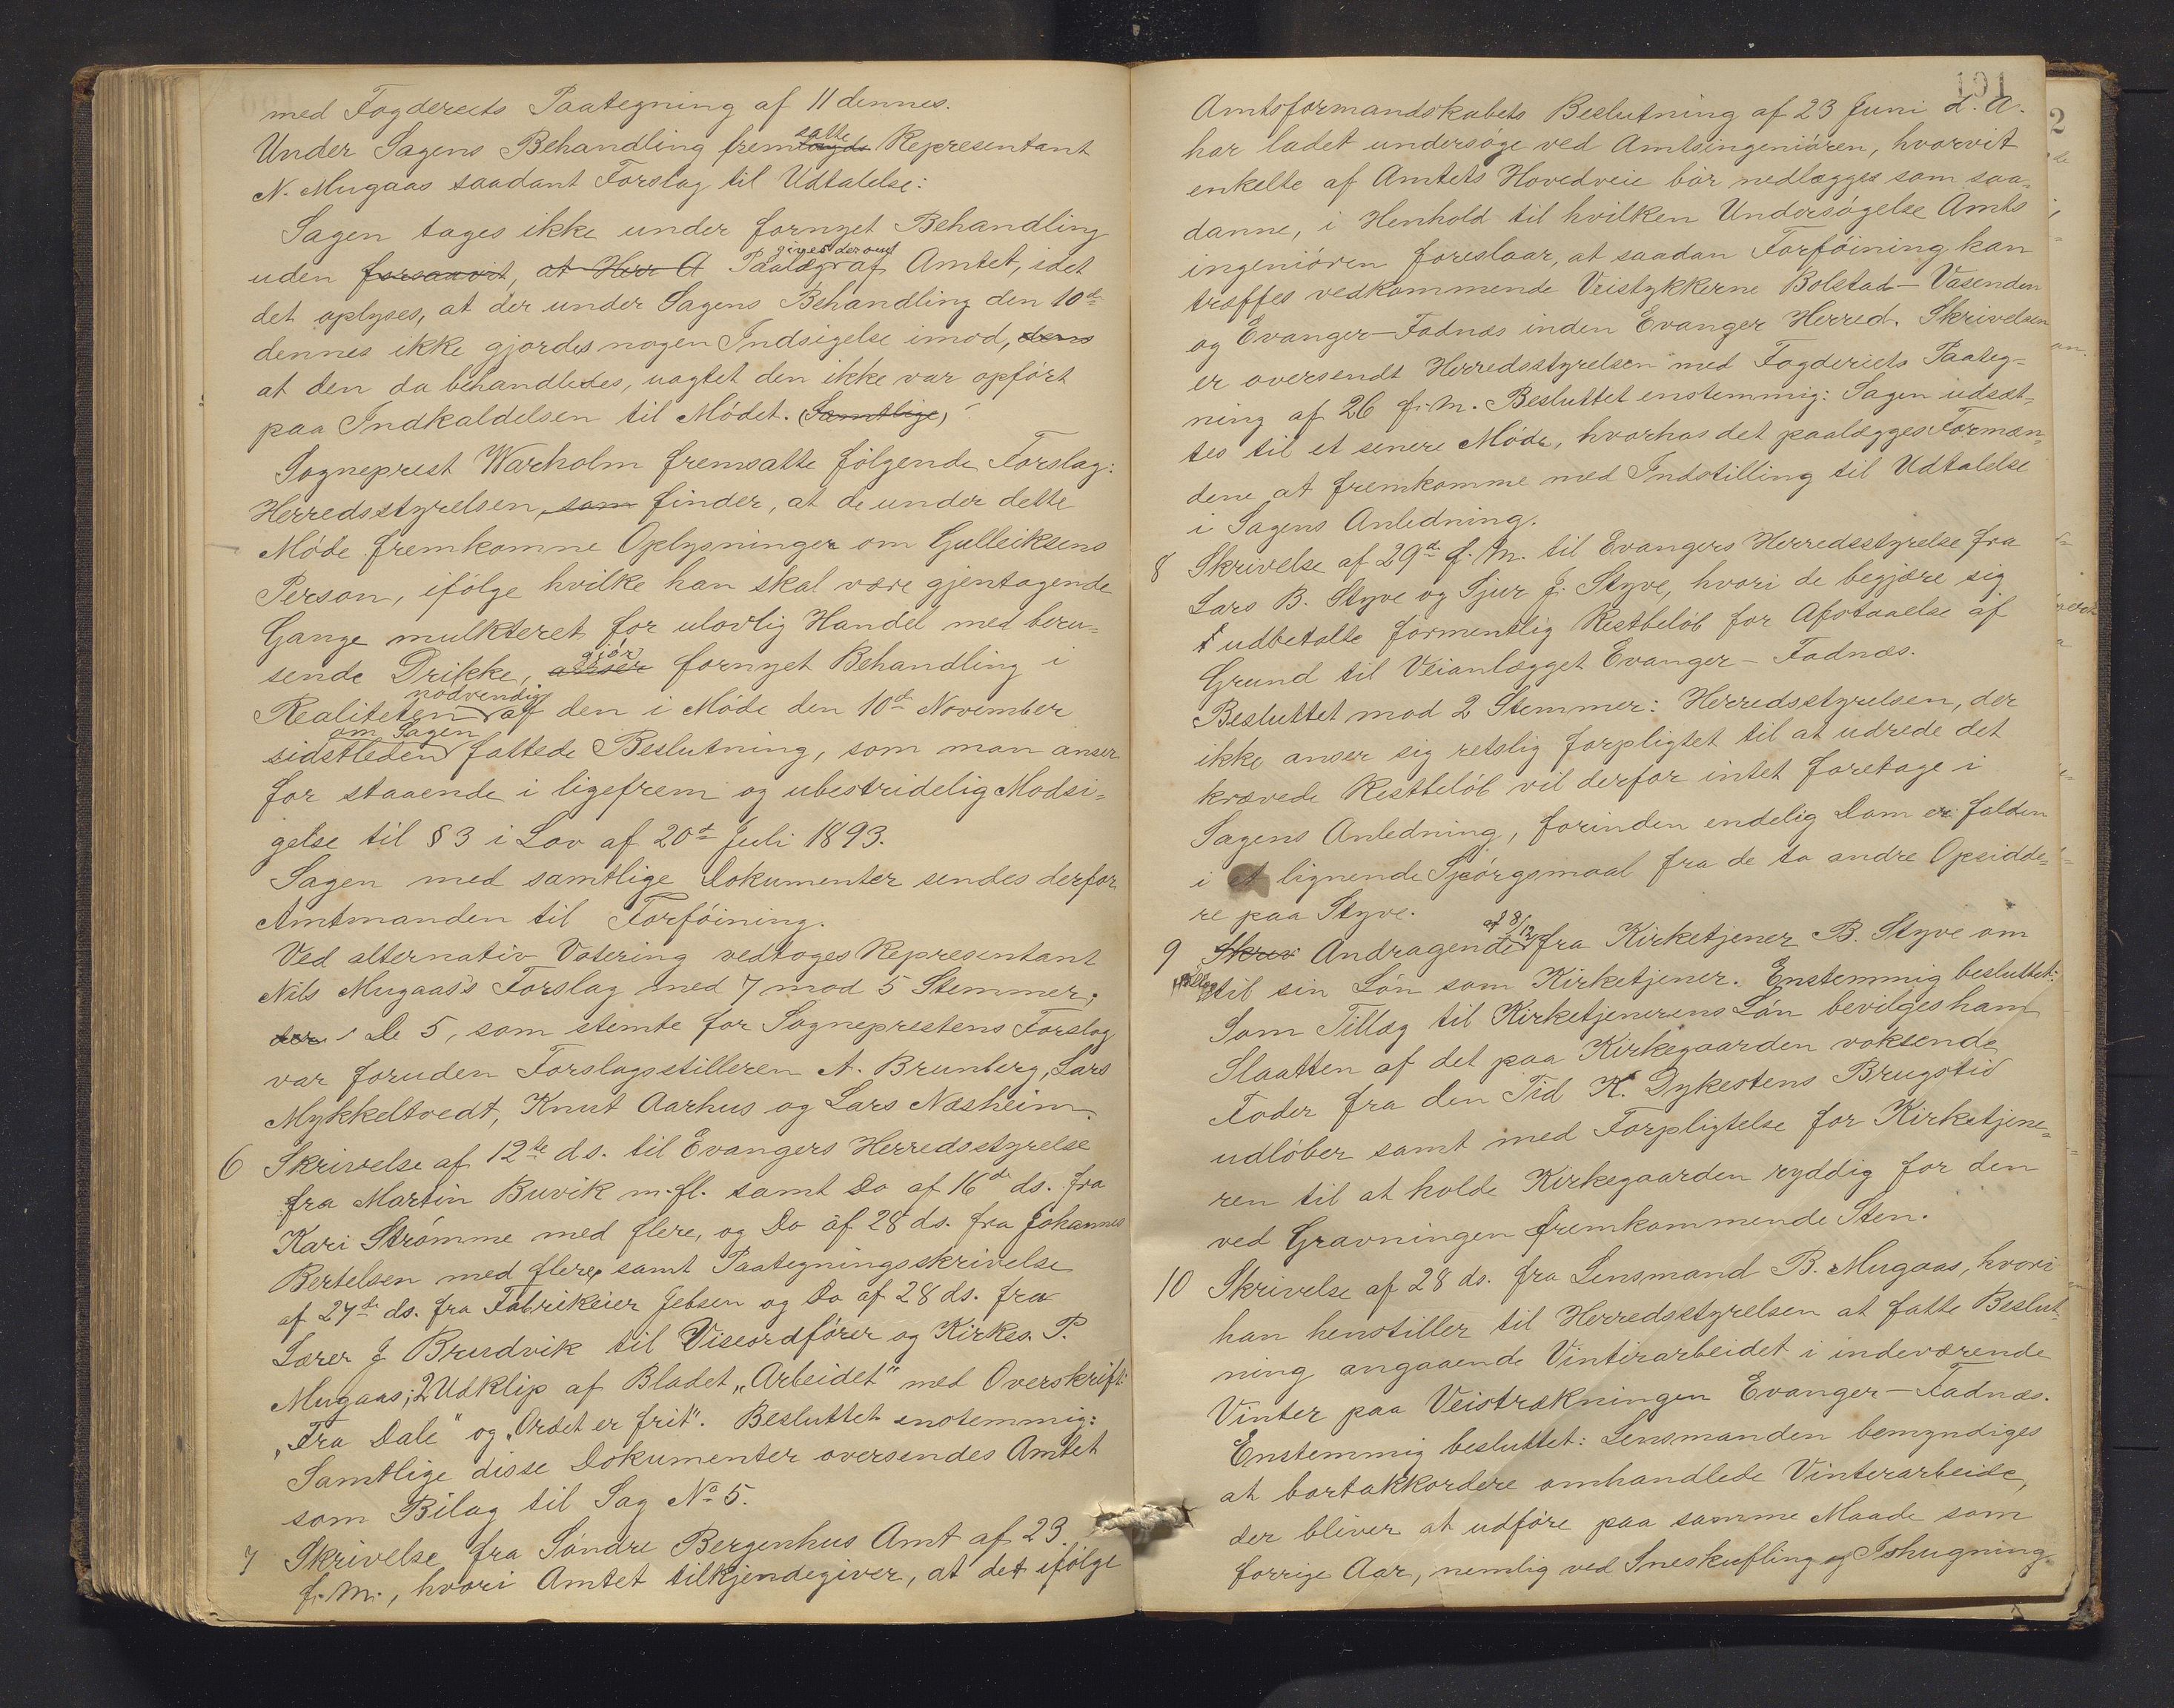 med Fogderiets Paategning af 11 dennes.
Under Sagens Behandling fremsatte Representant
N. Mugaas saadant Forslag til Udtalelse:
Sagen tages ikke under fornyet Behandling
uden forsaavit, at Herr A Paalæg gives derom af Amtet, idet
det oplyses, at der under Sagens Behandling den 10de
dennes ikke gjordes nogen Indsigelse imod, dens
at den da behandledes, uagtet den ikke var opført
paa Indkaldelsen til Mødet. (Samtlige)
Sogneprest Warholm fremsatte følgende Forslag:
Herredsstyrelsen, som finder, at de under dette
Møde fremkomne Oplysninger om Gulleiksens
Person, ifølge hvilke han skal være gjentagende
Gange mulkteret for ulovlig Handel med beru-
sende Drikke, anser gjør fornyet Behandling i
Realiteten nødvendig af den i Møde den 10de November
sidstleden om Sagen fattede Beslutning, som man anser
for staaende i ligefrem og ubestridelig Modsi-
gelse til § 3 i Lov af 20de Juli 1893.
Sagen med samtlige Dokumenter sendes derfor
Amtmanden til Forføining.
Ved alternativ Votering vedtoges Representant
Nils Mugaas's Forslag med 7 mod 5 Stemmer;
der De 5, som stemte for Sogneprestens Forslag
var foruden Forslagsstilleren A. Brunberg, Lars
Mykkeltvedt, Knut Aarhus og Lars Næsheim.
6 Skrivelse af 12te ds. til Evangers Herredsstyrelse
fra Martin Buvik m.fl. samt Do af 16de ds. fra
Kari Strømme med flere, og Do af 28 ds. fra Johannes
Bertelsen med flere, samt Paategningsskrivelse
af 27de ds. fra Fabrikeier Jebsen og Do af 28 ds. fra
Lærer J Brudvik til Viseordfører og Kirkes. P.
Mugaas; 2 Udklip af Bladet „Arbeidet" med Overskrift:
„Fra Dale" og „Ordet er frit". Besluttet enstemmig:
Samtlige disse Dokumenter oversendes Amtet
som Bilag til Sag No 5.
7 Skrivelse fra Søndre Bergenhus Amt af 23.
f. M., hvori Amtet tilkjendegiver, at det ifølge
191
Amtsformandskabets Beslutning af 23 Juni d. A.
har ladet undersøge ved Amtsingeniøren, hvorvit
enkelte af Amtets Hovedveie bør nedlægges som saa-
danne, i Henhold til hvilken Undersøgelse Amts
ingeniøren foreslaar, at saadan Forføining kan
træffes vedkommende Veistykkerne Bolstad – Vasenden
og Evanger – Fadnæs inden Evanger Herred. Skrivelsen
er oversendt Herredsstyrelsen med Fogderiets Paateg-
ning af 26 f. M. Besluttet enstemmig: Sagen udsæt-
tes til et senere Møde, hvorhos det paalægges Formæn-
dene at fremkomme med Indstilling til Udtalelse
i Sagens Anledning.
8 Skrivelse af 29de f. M. til Evangers Herredsstyrelse fra
Lars B. Styve og Sjur J. Styve, hvori de begjære sig
udbetalte formentlig Restbeløb for Afstaaelse af
Grund til Veianlægget Evanger – Fadnæs.
Besluttet mod 2 Stemmer: Herredsstyrelsen, der
ikke anser sig retslig forpligtet til at udrede det
krævede Restbeløb vil derfor intet foretage i
Sagens Anledning, forinden endelig Dom er falden
i et lignende Spørgsmaal fra de to andre Opsidde-
re paa Styve.
9 Skrev Andragende af 8/12 fra Kirketjener B. Styve om
Tillæg til sin Løn som Kirketjener. Enstemmig besluttet:
Som Tillæg til Kirketjenerens Løn bevilges ham
Slaatten af det paa Kirkegaarden voksende
Foder fra den Tid K. Dykestens Brugstid
udløber samt med Forpligtelse for Kirketjene-
ren til at holde Kirkegaarden ryddig for den
ved Gravningen fremkommende Sten.
10 Skrivelse af 28 ds. fra Lensmand B. Mugaas, hvori
han henstiller til Herredsstyrelsen at fatte Beslut-
ning angaaende Vinterarbeidet i indeværende
Vinter paa Veistrækningen Evanger – Fadnæs.
Enstemmig besluttet: Lensmanden bemyndiges
at bortakkordere omhandlede Vinterarbeide,
der bliver at udføre paa samme Maade som
forrige Aar, nemlig ved Sneskufling og Ishugning